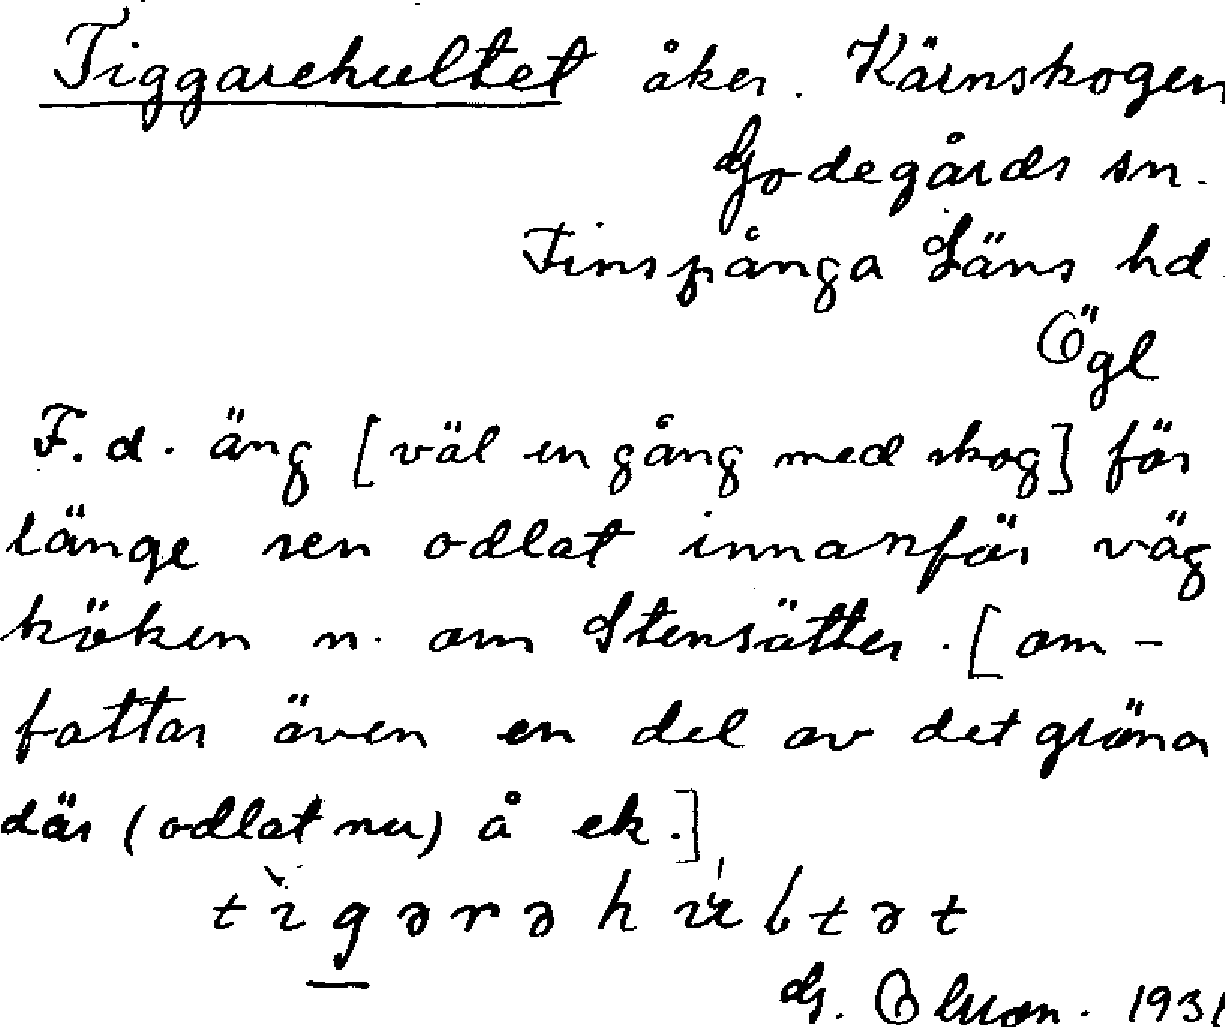 Tiggarehultet åker. Kärnskogen
Godegårds sn.
Finspånga Läns hd.
Ögl
F. d. äng [väl en gång med skog] för
länge sen odlat innanför väg
kröken n. om Stensätter. [om-
fattar även en del av det gröna
där (odlat nu) å ek.]
G. Olsson. 1931